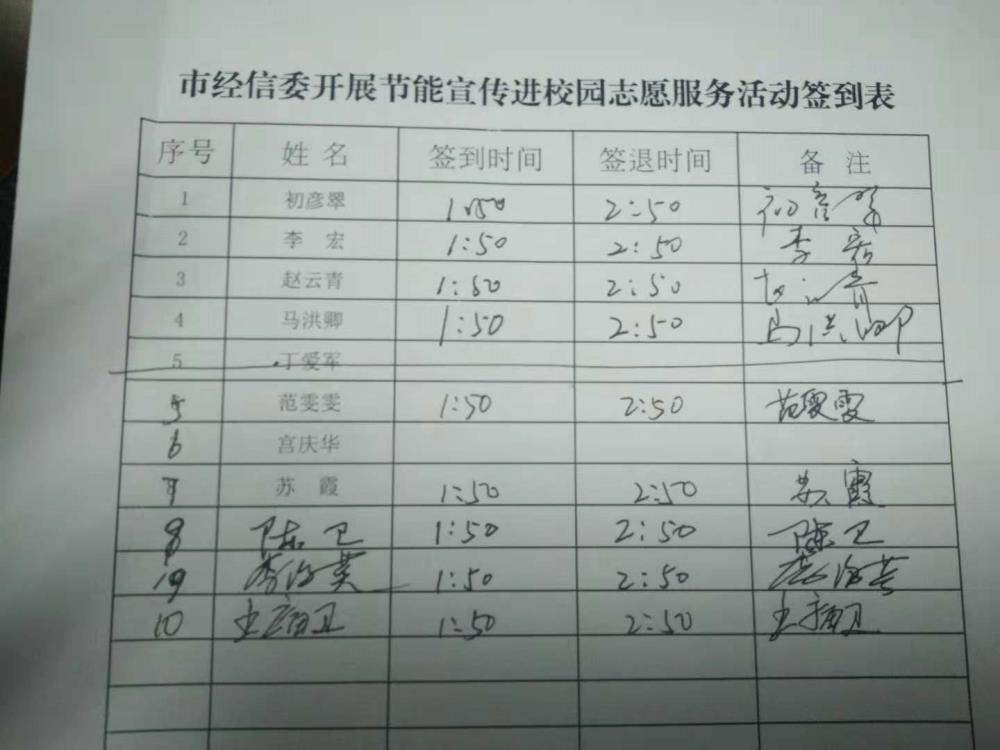 市经信委开展节能宣传进校园志愿服务活动签到表
序号 姓名 签到时间 签退时间 备注
1 初彦翠 1:50 2:50 初彦翠
2 李宏 1:50 2:50 李宏
3 赵云青 1:50 2:50 赵云青
4 马洪卿 1:50 2:50 马洪卿
5 丁爱军
5 范雯雯 1:50 2:50 范雯雯
6 宫庆华
7 苏霞 1:50 2:50 苏霞
8 陈卫 1:50 2:50 陈卫
9 1:50 2:50
10 1:50 2:50